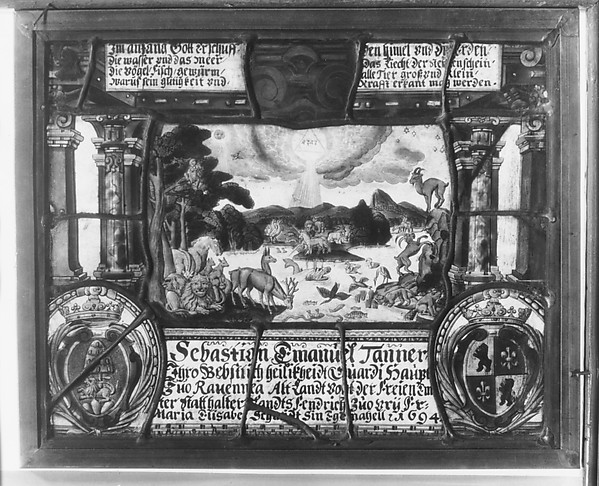 Im anfang Gott erschuff
die wasser und das meer
die Vögel Fisch gewürm
warus sein gütigkeit und
Den himel und die erden
das Liecht der steinenschein
alle Tier groß und klein
Krafft erkant mög werden.
Sebastian Emanuel Tanner
Ihro Bebstlich heilikheidt Guardi Haupt
Zuo Ravenna Alt Landt Vogt der Freien Em
ter statthalter Landts Fendrich Zuo Vry Fr
Maria Elisabe Schmidt Sin Egemahell 1694